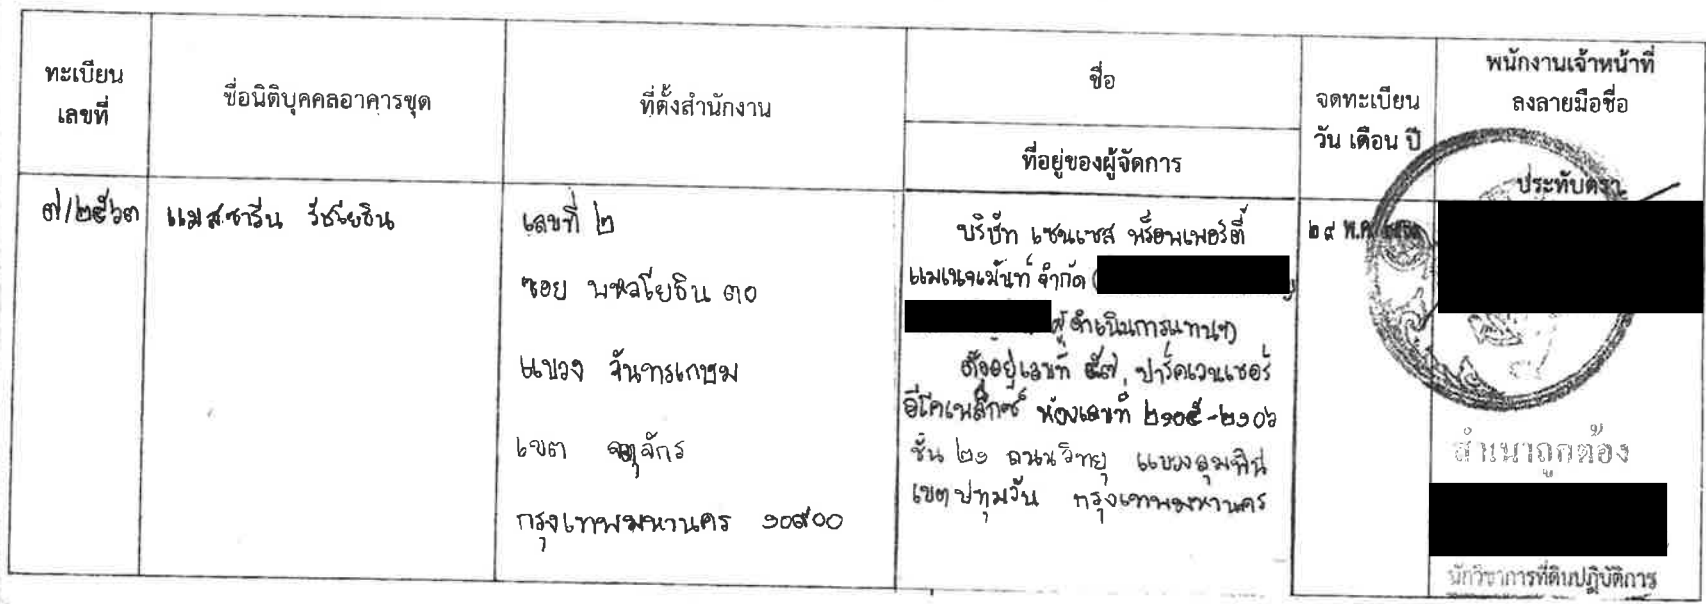 ทะเบียน
เลขที่
ชื่อนิติบุคคลอาคารชุด
ที่ตั้งสำนักงาน
ชื่อ
ที่อยู่ของผู้จัดการ
จดทะเบียน
วัน เดือน ปี
พนักงานเจ้าหน้าที่
ลงลายมือชื่อ
ประทับตรา
๗/๒๕๖๓
แมสซารีน รัชโยธิน
เลขที่ ๒
ซอย พหลโยธิน ๓๐
แขวง จันทรเกษม
เขต จตุจักร
กรุงเทพมหานคร ๑๐๙๐๐
บริษัท เซนเซส พร็อพเพอร์ตี้
แมเนจเม้นท์ จำกัด (
ผู้ดำเนินการแทนฯ)
ตั้งอยู่เลขที่ ๕๗ ปาร์คเวนเชอร์
อีโคเพล็กซ์ ห้องเลขที่ ๒๑๐๕-๒๑๐๖
ชั้น ๒๑ ถนนวิทยุ แขวงลุมพินี
เขตปทุมวัน กรุงเทพมหานคร
๒๙ พ.ค.
สำเนาถูกต้อง
นักวิชาการที่ดินปฏิบัติการ